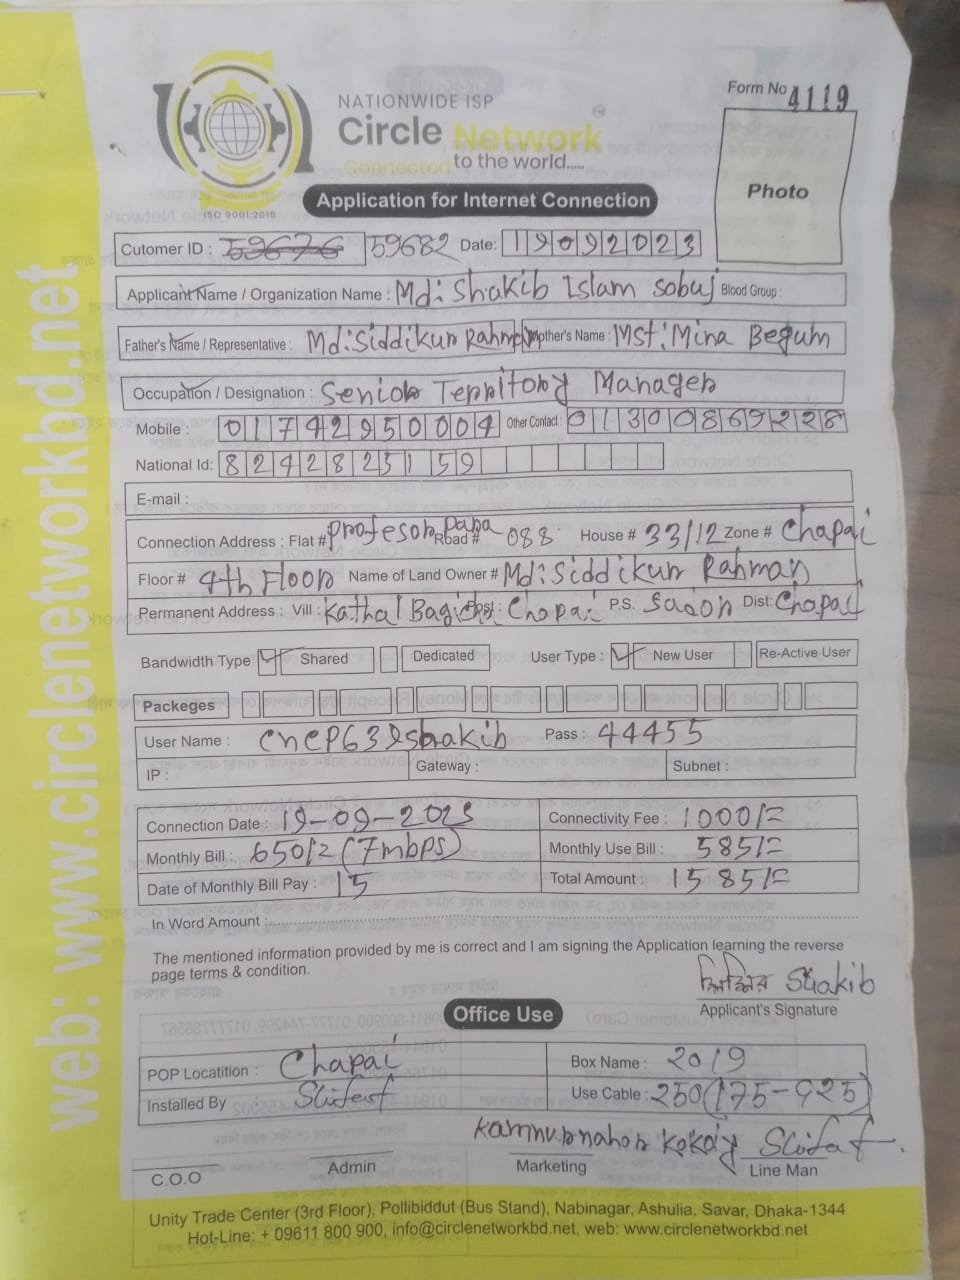 NATIONWIDE ISP
Circle Network
Connected to the world.....
ISO 9001:2015
Form No 4119
Photo
Application for Internet Connection
Cutomer ID : 59676 59682 Date: 19092023
Applicant Name / Organization Name : Md: Shakib Islam sobuj Blood Group :
Father's Name / Representative : Md: Siddikur Rahman Mother's Name : Mst: Mina Begum
Occupation / Designation : Senior Territory Manager
Mobile : 01742950004 Other Contact : 01300869228
National Id: 8242825159
E-mail :
Connection Address : Flat # Profesor Para Road # 088 House # 33/12 Zone # Chapai
Floor # 4th Floor Name of Land Owner # Md: Siddikur Rahman
Permanent Address : Vill : Kathal Bagicha Post : Chapai P.S. Sador Dist: Chapai
Bandwidth Type Shared Dedicated User Type : New User Re-Active User
Packeges
User Name : Pass : 44455
IP : Gateway : Subnet :
Connection Date : 19-09-2023 Connectivity Fee : 1000/=
Monthly Bill : 650/= (7mbps) Monthly Use Bill : 585/=
Date of Monthly Bill Pay : 15 Total Amount : 1585/=
In Word Amount :
The mentioned information provided by me is correct and I am signing the Application learning the reverse
page terms & condition.
Shakib
Applicant's Signature
Office Use
POP Locatition : Chapai Box Name : 2019
Installed By Use Cable : 250 (175-925)
C.O.O Admin Marketing Line Man
Unity Trade Center (3rd Floor), Pollibiddut (Bus Stand), Nabinagar, Ashulia, Savar, Dhaka-1344
Hot-Line: + 09611 800 900, info@circlenetworkbd.net, web: www.circlenetworkbd.net
web: www.circlenetworkbd.net